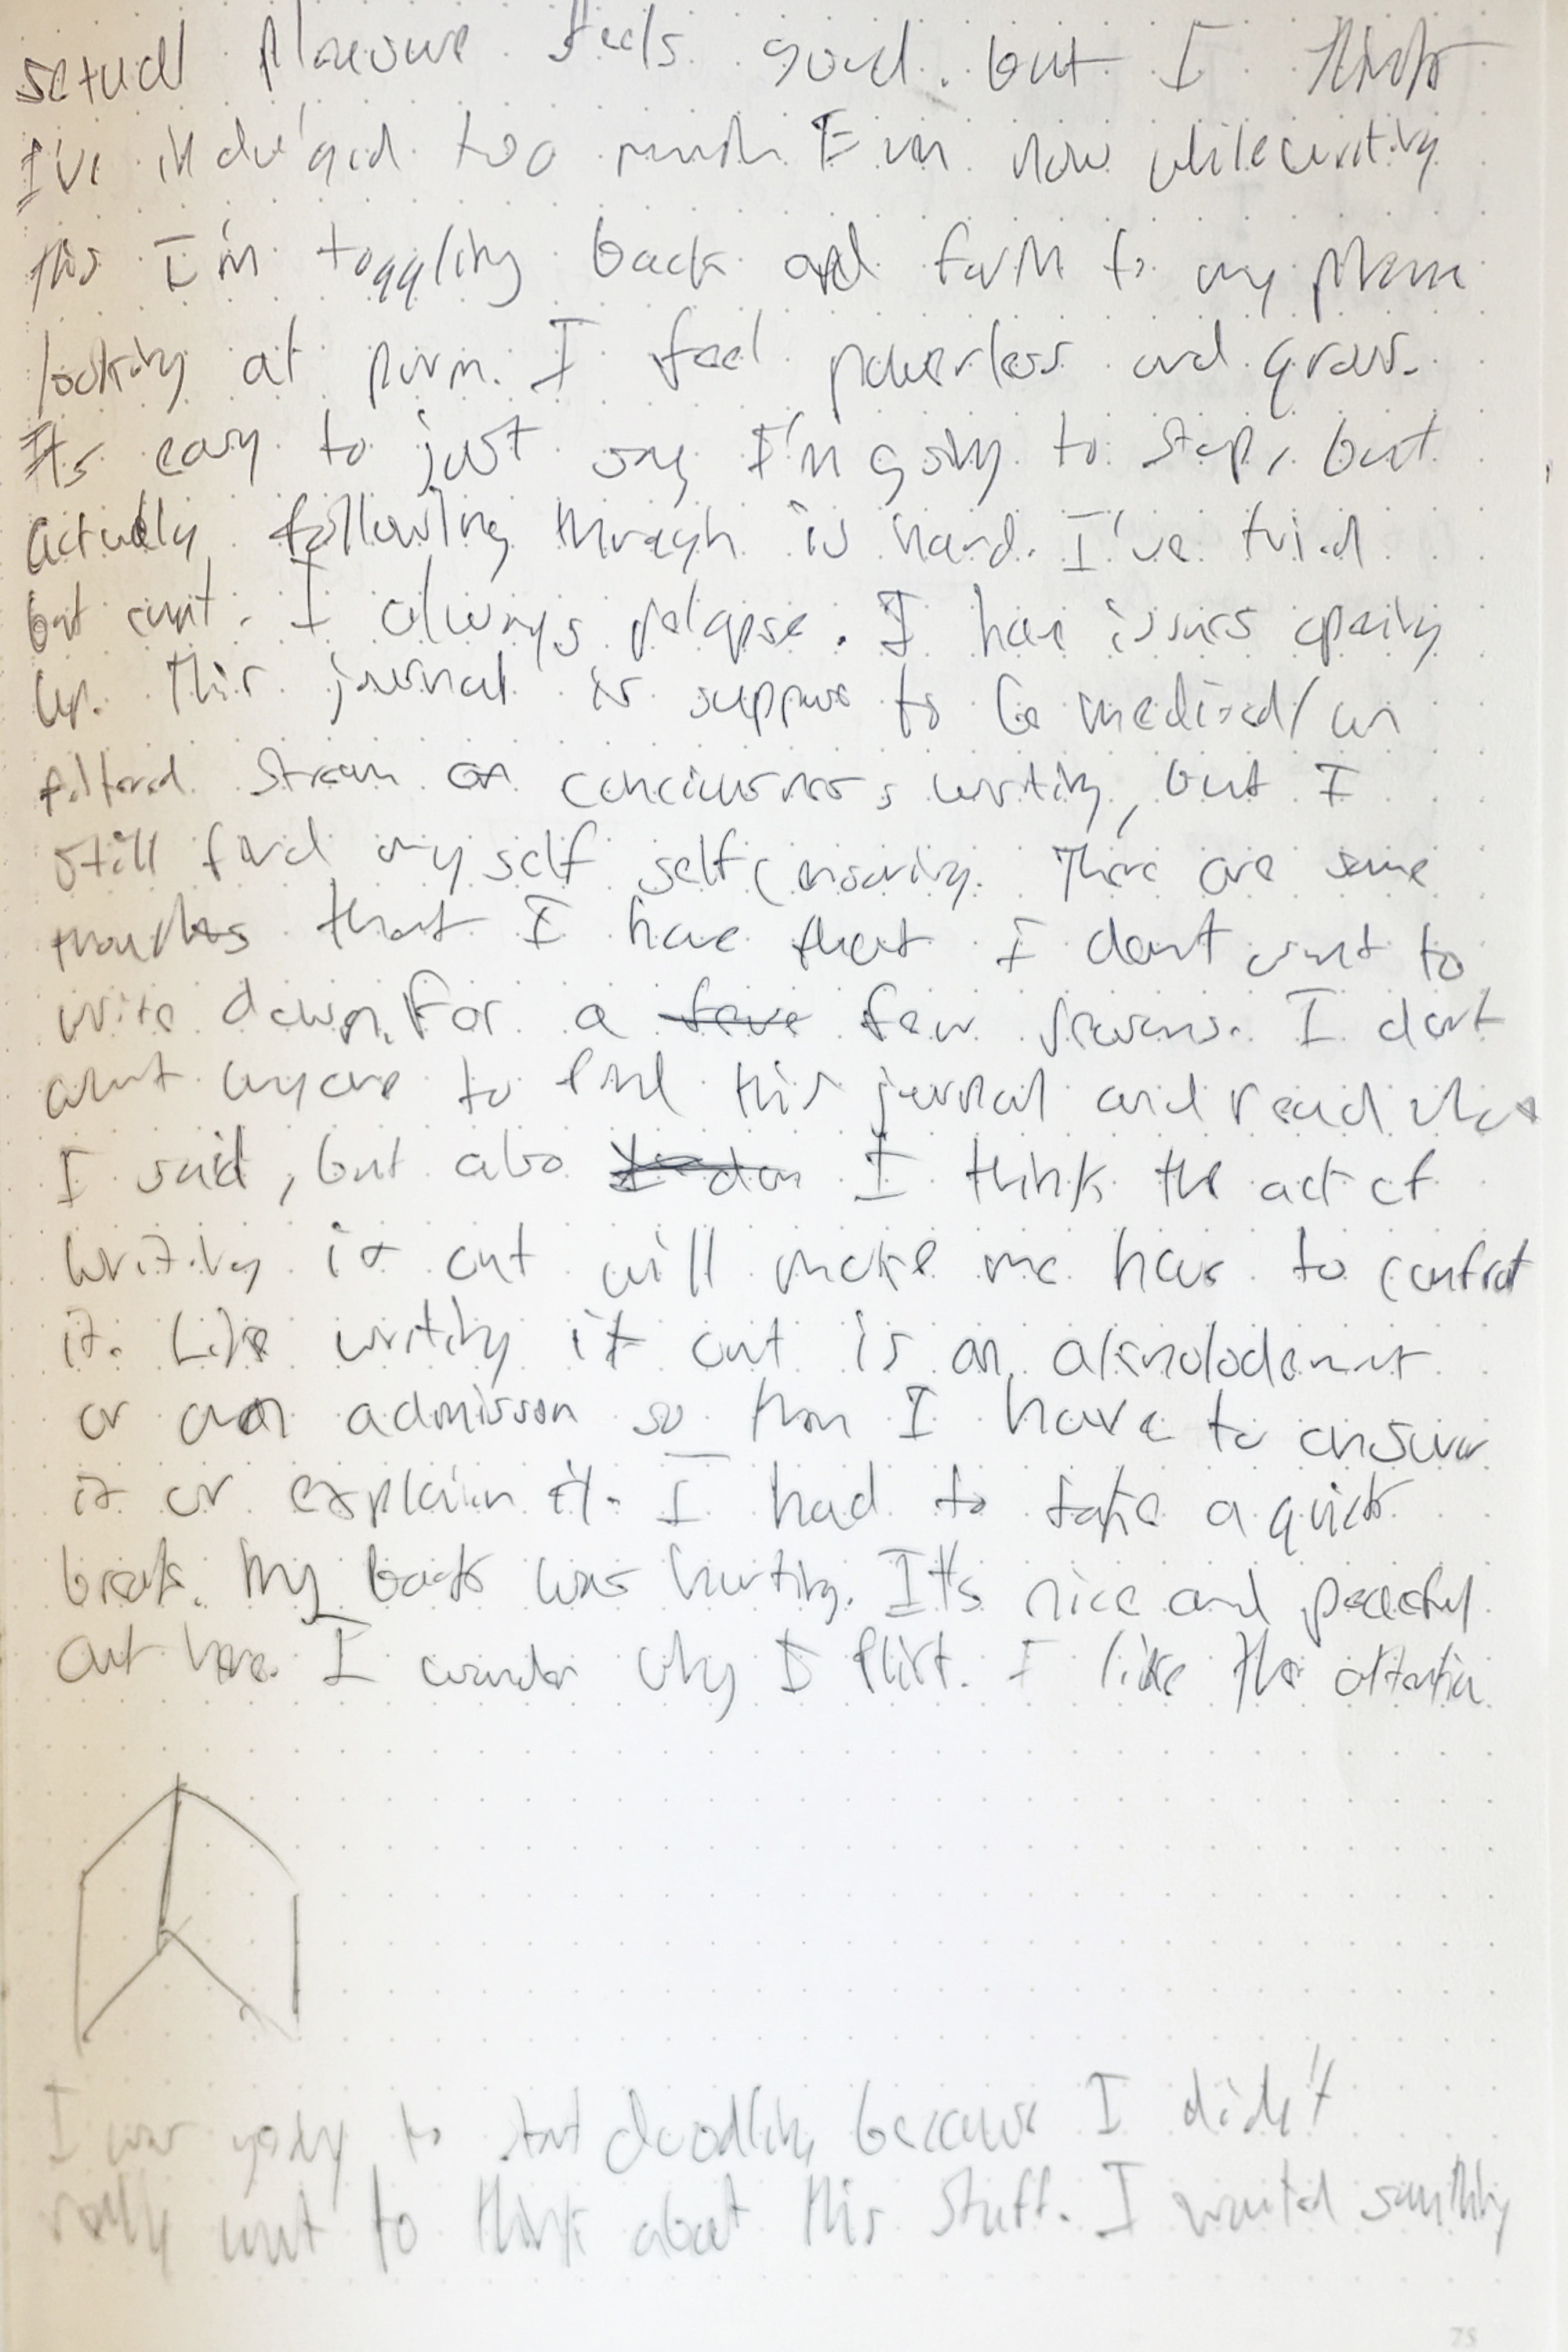 sexual pleasure feels good. but I think
I've indulged too much Even now while writing
this I'm toggling back and forth to my phone
looking at porn. I feel powerless and gross.
Its easy to just say I'm going to stop, but
actually following through is hard. I've tried
but cant. I always relapse. I have issues opening
up. This journal is suppose to be / un
filtered stream on conciusness writing, but I
still find myself self censoring. There are some
thoughts that I have that I dont want to
write down. For a few reasons. I dont
want anyone to find this journal and read what
I said, but also I think the act of
writing it out will make me have to confront
it. Like writing it out is an aknolodement
or an admisson so then I have to answer
it or explain it. I had to take a quick
break. My back was hurting. It's nice and peaceful
out here. I wonder why I flirt. I like the attention
I was going to start doodling because I didn't
really want to think about this stuff. I wanted something
75